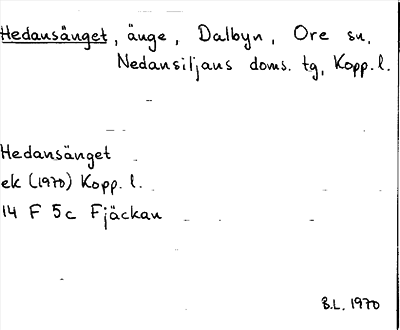 Hedansänget, änge, Dalbyn, Ore sn,
Nedansiljans doms. tg, Kopp. l.
Hedansänget
ek (1970) Kopp. l.
14 F 5c Fjäckan
B.L. 1970